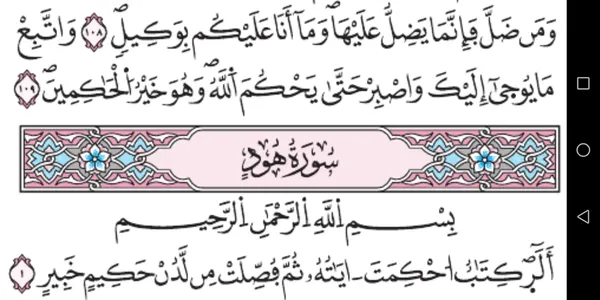 وَمَن ضَلَّ فَإِنَّمَا يَضِلُّ عَلَيْهَا وَمَا أَنَا عَلَيْكُم بِوَكِيلٖ ١٠٨ وَاتَّبِعْ
مَا يُوحَىٰ إِلَيْكَ وَاصْبِرْ حَتَّىٰ يَحْكُمَ اَللَّهُ وَهُوَ خَيْرُ اُلْحَاكِمِينَ ١٠٩
سُورَةُ هُودٍ
بِسْمِ اِللَّهِ اِلرَّحْمَٰنِ اِلرَّحِيمِ
أَلَٓر كِتَٰبٌ ا۟حْكِمَتَ ـ ايَٰتُهُۥ ثُمَّ فُصِّلَتْ مِن لَّدُنْ حَكِيمٍ خَبِيرٍ ١